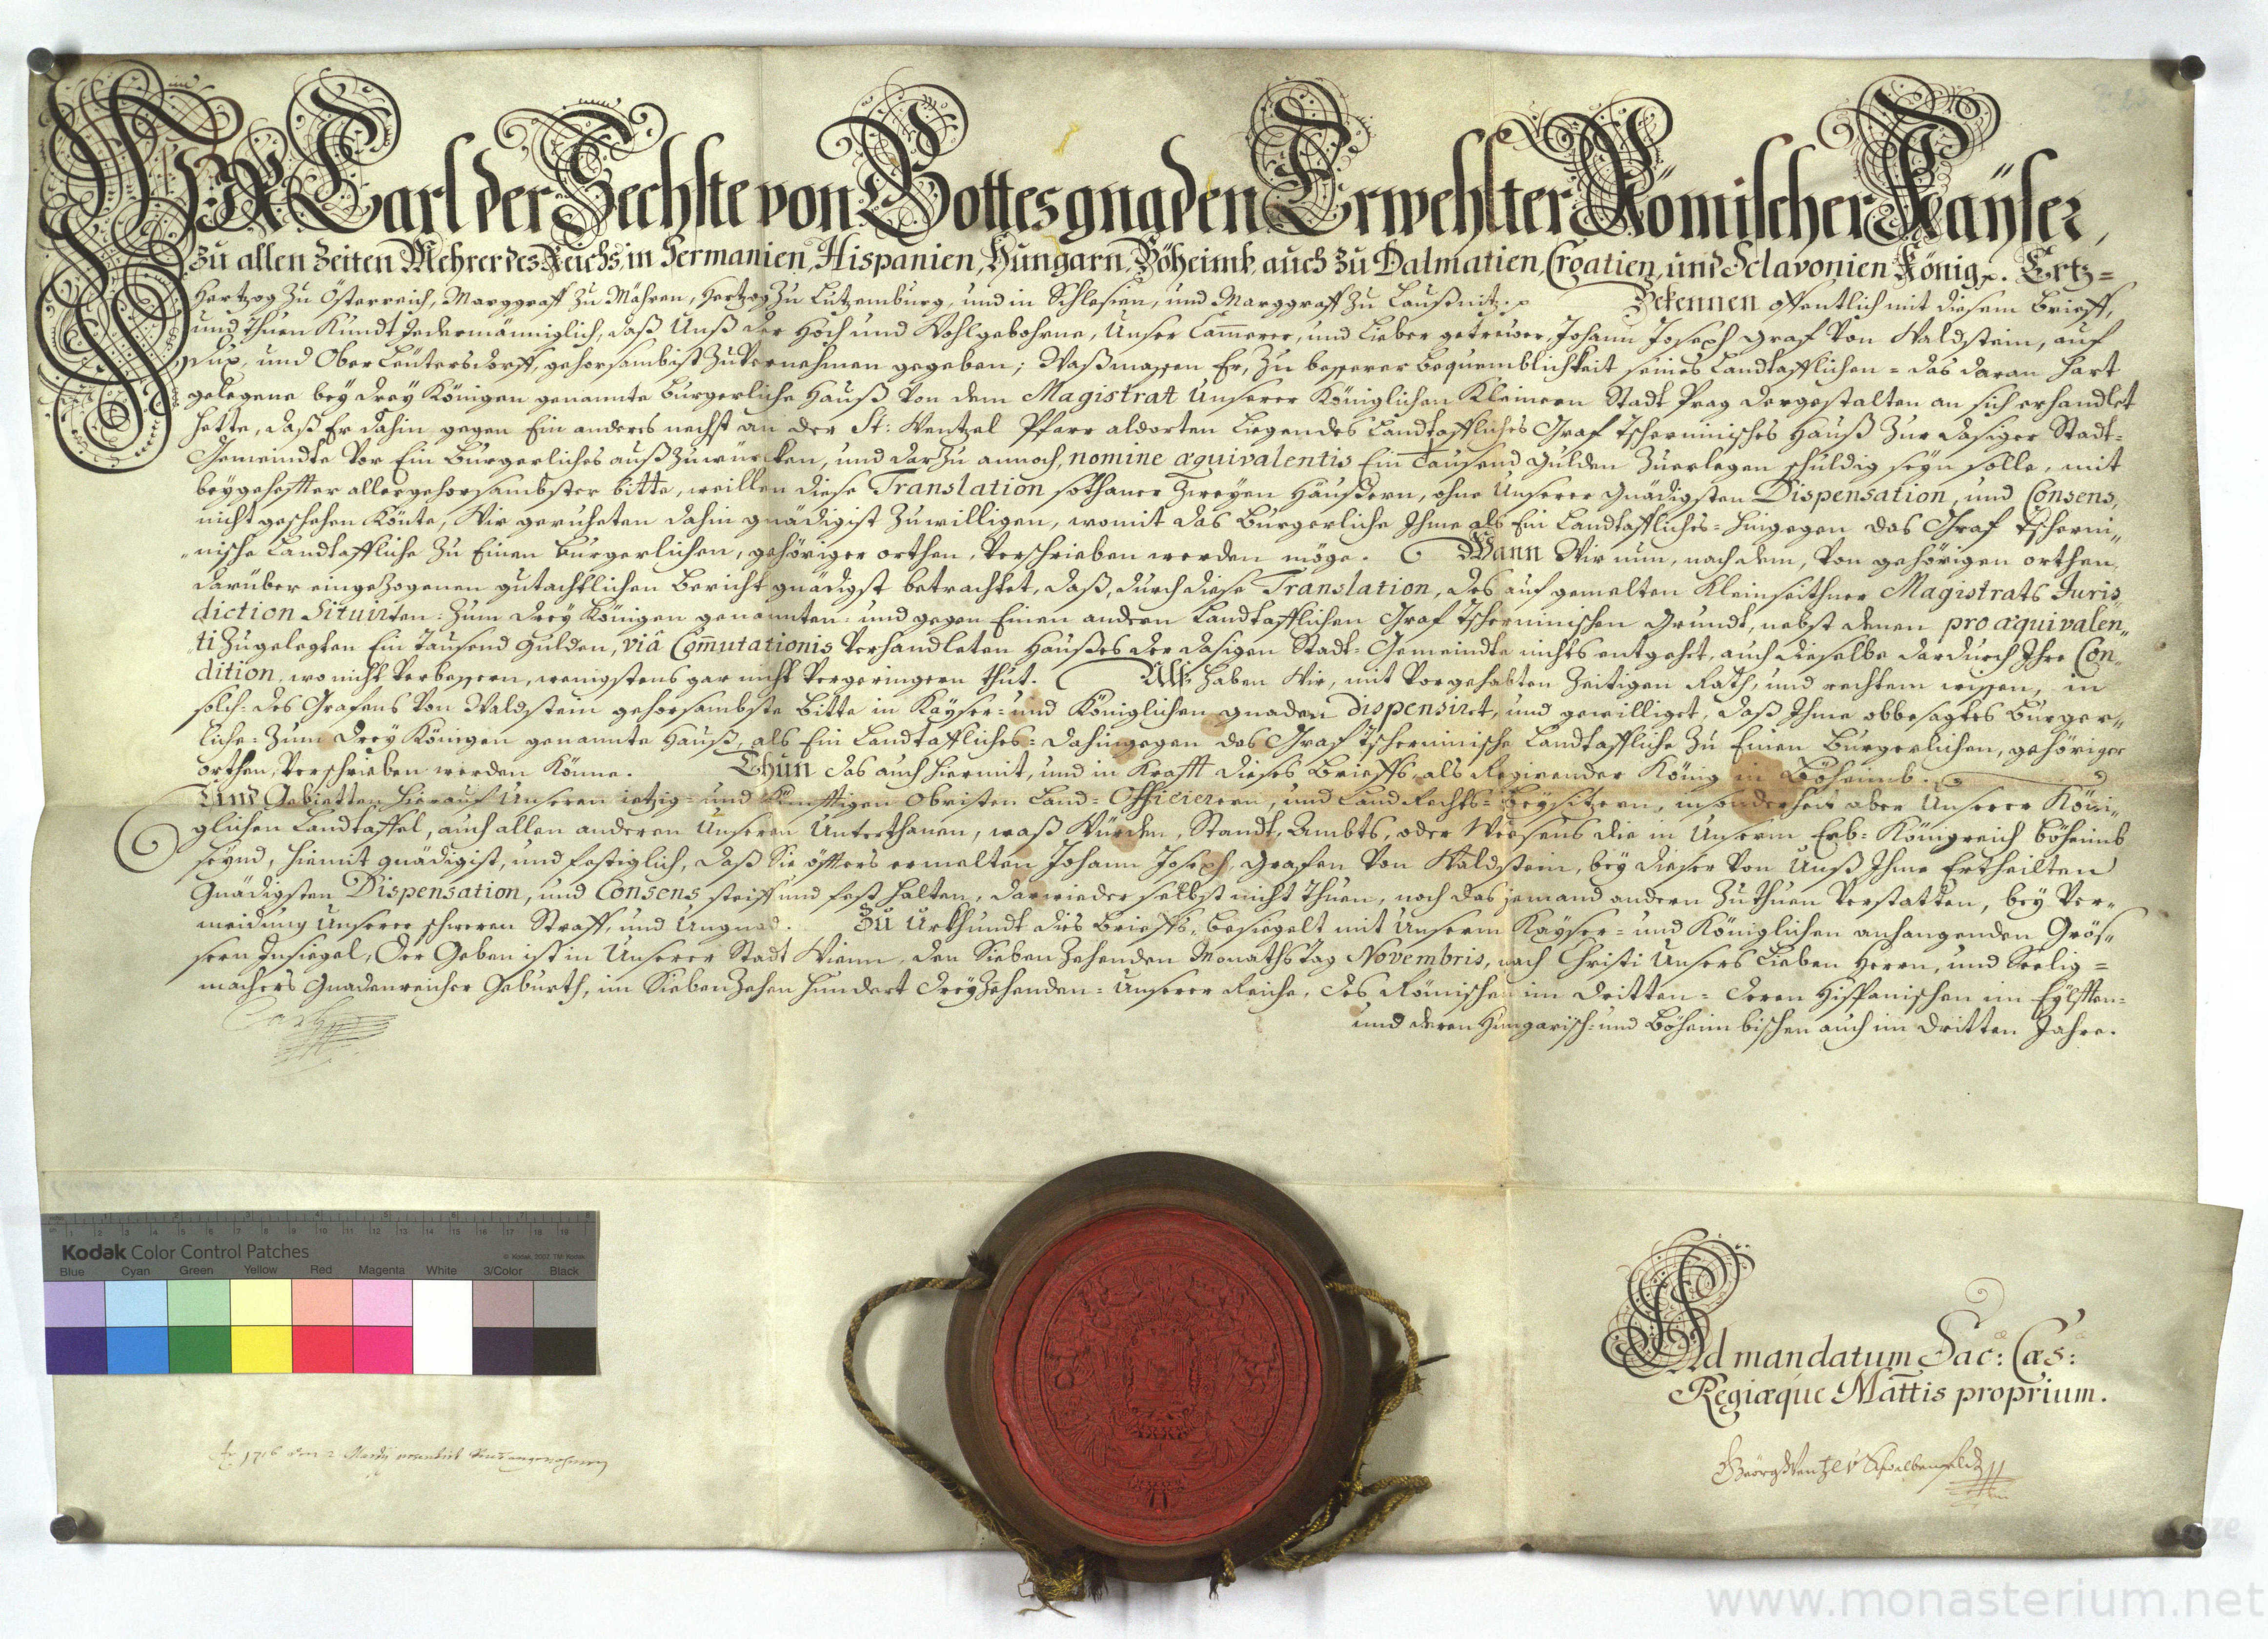 Wir Carl der Sechste von Gottes gnaden Erwehlter Römischer Kayser,
zu allen Zeiten Mehrer des Reichs, in Germanien, Hispanien, Hungarn, Böheimb, auch zu Dalmatien, Croatien, und Sclavonien König p. Ertz=
Hertzog zu Österreich, Marggraff zu Mähren, Hertzog zu Lutzemburg, und in Schlesien, und Marggraff zu Laußnitz. p Bekennen offentlich mit diesem Brieff,
und thuen kundt Jedermänniglich, daß Unß der Hoch und Wohlgebohrne, Unser Cam̄erer, und Lieber getreuer, Johann Joseph Graf von Waldstein, auf
Dux, und Ober Leütersdorff, gehorsambist zuvernehmen gegeben; Waßmassen Er, zu besserer bequemblichkeit seines Landtafflichen = das daran hart
gelegene bey drey Königen genannte burgerliche Hauß von dem Magistrat Unserer Königlichen Kleinern Stadt Prag dergestalten an sich erhandlet
hette, daß Er dahin gegen Ein anderes nechst an der St: Wentzel Pfarr aldorten Liegendes Landtaffliches Graf Tscherninisches Hauß zur dasiger Stadt=
Gemeindte vor Ein Burgerliches außzuwürcken, und darzu annoch, nomine æquivalentis Ein Tausend gulden zuerlegen schuldig seyn solle, mit
beygehefter allergehorsambster bitte, weillen diese Translation sothaner zweyen Häußern, ohne Unserer Gnädigsten Dispensation, und Consens,
nicht geschehen könte, Wir geruheten dahin gnädigist zu willigen, womit das Burgerliche Ihme als Ein Landtaffliches = hingegen das Graf Tscherni„
„nische Landtaffliche zu Einen Burgerlichen, gehöriger orthen, verschrieben werden möge. Wann Wir nun, nachdem, von gehörigen orthen,
darüber eingezogenen gutachtlichen Bericht gnädigst betrachtet, daß, durch diese Translation, des auf gemelten Kleinseithner Magistrats Juris„
diction Situirten = zum drey Königen genannten = und gegen Einen andern Landtafflichen Graf Tscherninischen Grundt, nebst denen pro æquivalen„
„ti zugelegten Ein Tausend gulden, viâ Com̄utationis verhandleten Haußes der dasigen Stadt = Gemeindte nichts entgehet, auch dieselbe dardurch Ihre Con„
dition, wo nicht verbessern, wenigstens gar nicht vergeringern thut. Alß haben Wir, mit vorgehabten zeitigen Rath, und rechtem wissen, in
solch = des Grafens von Waldstein gehorsambste bitte in Kayser = und Königlichen gnaden dispensiret, und gewilliget, daß Ihme obbesagtes Burger„
liche = zum drey Königen genannte Hauß, als Ein Landtaffliches = dahingegen das Graf Tscherninische Landtaffliche zu Einen Burgerlichen, gehöriger
orthen, verschrieben werden könne. Thun das auch hiermit, und in Krafft dieses Brieffs, als Regirender König in Böheimb.
Und Gebietten hierauf Unseren ietzig = und künfftigen Obristen Land = Officierern, und Land Rechts = Beysitzern, insonderheit aber Unserer Köni„
glichen Landtaffel, auch allen anderen Unseren Unterthanen, waß Würden, Standt, Ambts, oder Weesens die in Unserm Erb = Königreich Böheimb
seynd, hiemit gnädigist, und festiglich, daß Sie öffters ermelten Johann Joseph, Grafen von Waldstein, bey dieser von Unß Ihme Ertheilten
Gnädigsten Dispensation, und Consens steiff und fest halten, darwieder selbst nicht thuen, noch das jemand andern zu thuen verstatten, bey ver„
meidung Unserer schweren Straff, und Ungnad. Zu Urkhundt dies Brieffs, besiegelt mit Unserm Kayser = und Königlichen anhangenden Grös„
sern Insiegel, Der Geben ist in Unserer Stadt Wienn, den Siebenzehenden Monaths Tag Novembris, nach Christi Unsers Lieben Herrn, und Seelig =
machers Gnadenreicher Geburth, im Siebenzehen hundert dreyzehenden = Unserer Reiche, des Römischen im dritten = deren Hispanischen im Eylfften =
und deren Hungarisch = und Böheimbischen auch im dritten Jahre.
Carl
Kodak Color Control Patches
Blue Cyan Green Yellow Red Magenta White 3/Color Black
Ad mandatum Sac: Cæs:
Regiæque Mattis proprium.
www.monasterium.net